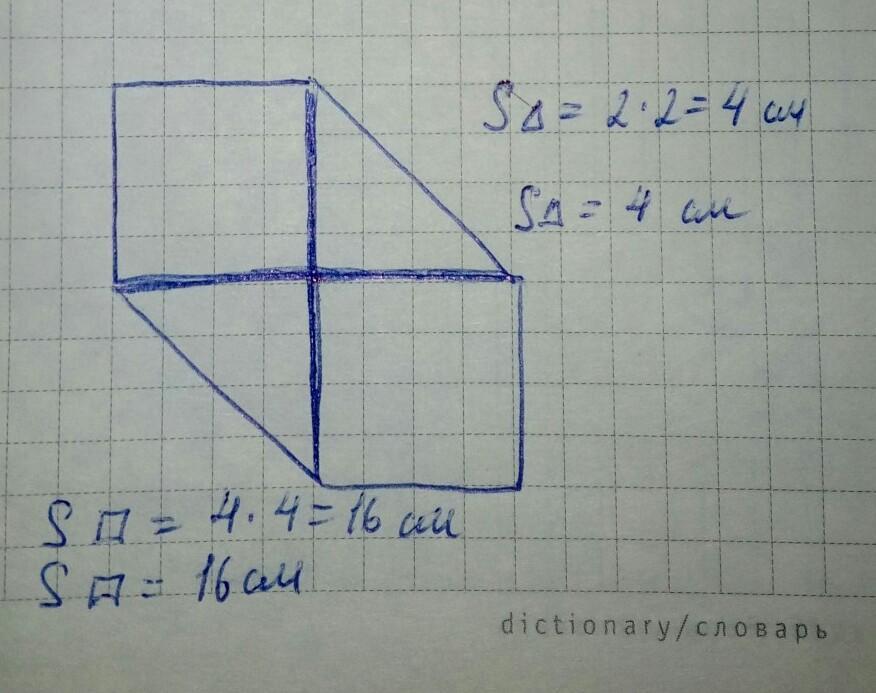 S△ = 2·2=4 см
S△ = 4 см
S□ = 4·4=16 см
S□ = 16 см
dictionary/словарь